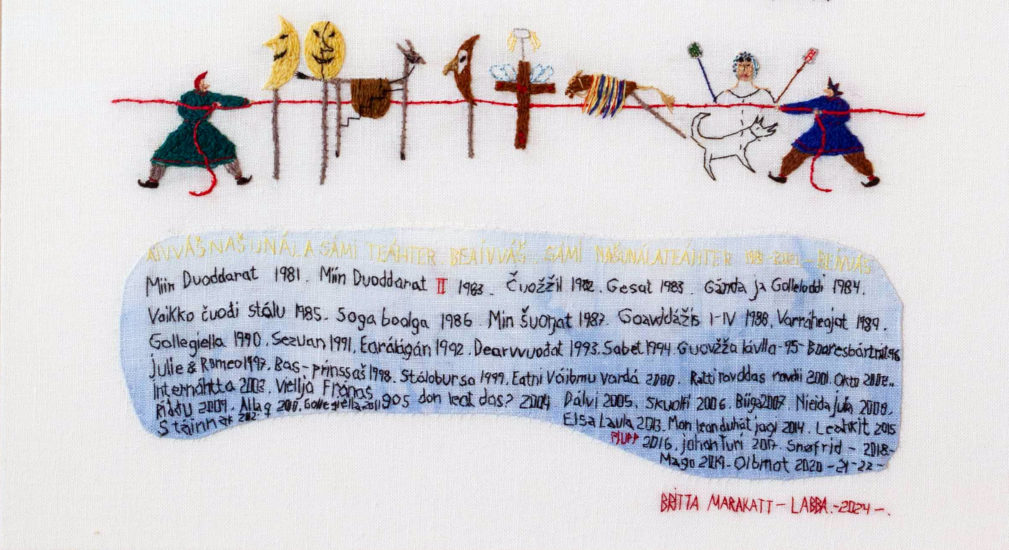 NAŠUNÁLA SÁMI TEÁHTER BEAIVVÁŠ SÁMI NAŠUNÁLATEÁHTER 1981-2021 - BEAIVVÁŠ
Miin Duoddarat 1981. Miin Duoddarat II 1983. Čuožžil 1982. Gesat 1983. Gánda ja Golleloddi 1984.
Vaikko čuođi stálu 1985. Soga boalga 1986. Min šuoŋat 1987. Goavddážis I-IV 1988, Varraheajat 1989.
Gollegiella 1990. Sezuan 1991, Earálágán 1992. Dearvvuođat 1993. Sabet 1994. Guovžža lávlla -95- Boaresbártniid 96
Julie & Romeo 1997. Bas-prinssaš 1998. Stálobursa 1999. Eatni Váibmu Vardá 2000. Rátti ravddas ravdii 2001. Okto 2002.
Internáhtta 2003. Viellja Fránas gos don leat das? 2004 Dálvi 2005. Skuolfi 2006. Biiga 2007. Nieida ja 2008.
Riddu 2009. Allag Gollegiella 2011 Elsa Laula 2013. Mon lean duhát jagi 2014. Leahkit 2015
Stáinnat PJUPP 2016, Johan Turi 2017. Snøfrid - 2018-
Mágo 2019. Olbmot 2020 -21-22-
BRITTA MARAKATT-LABBA.-2024-.